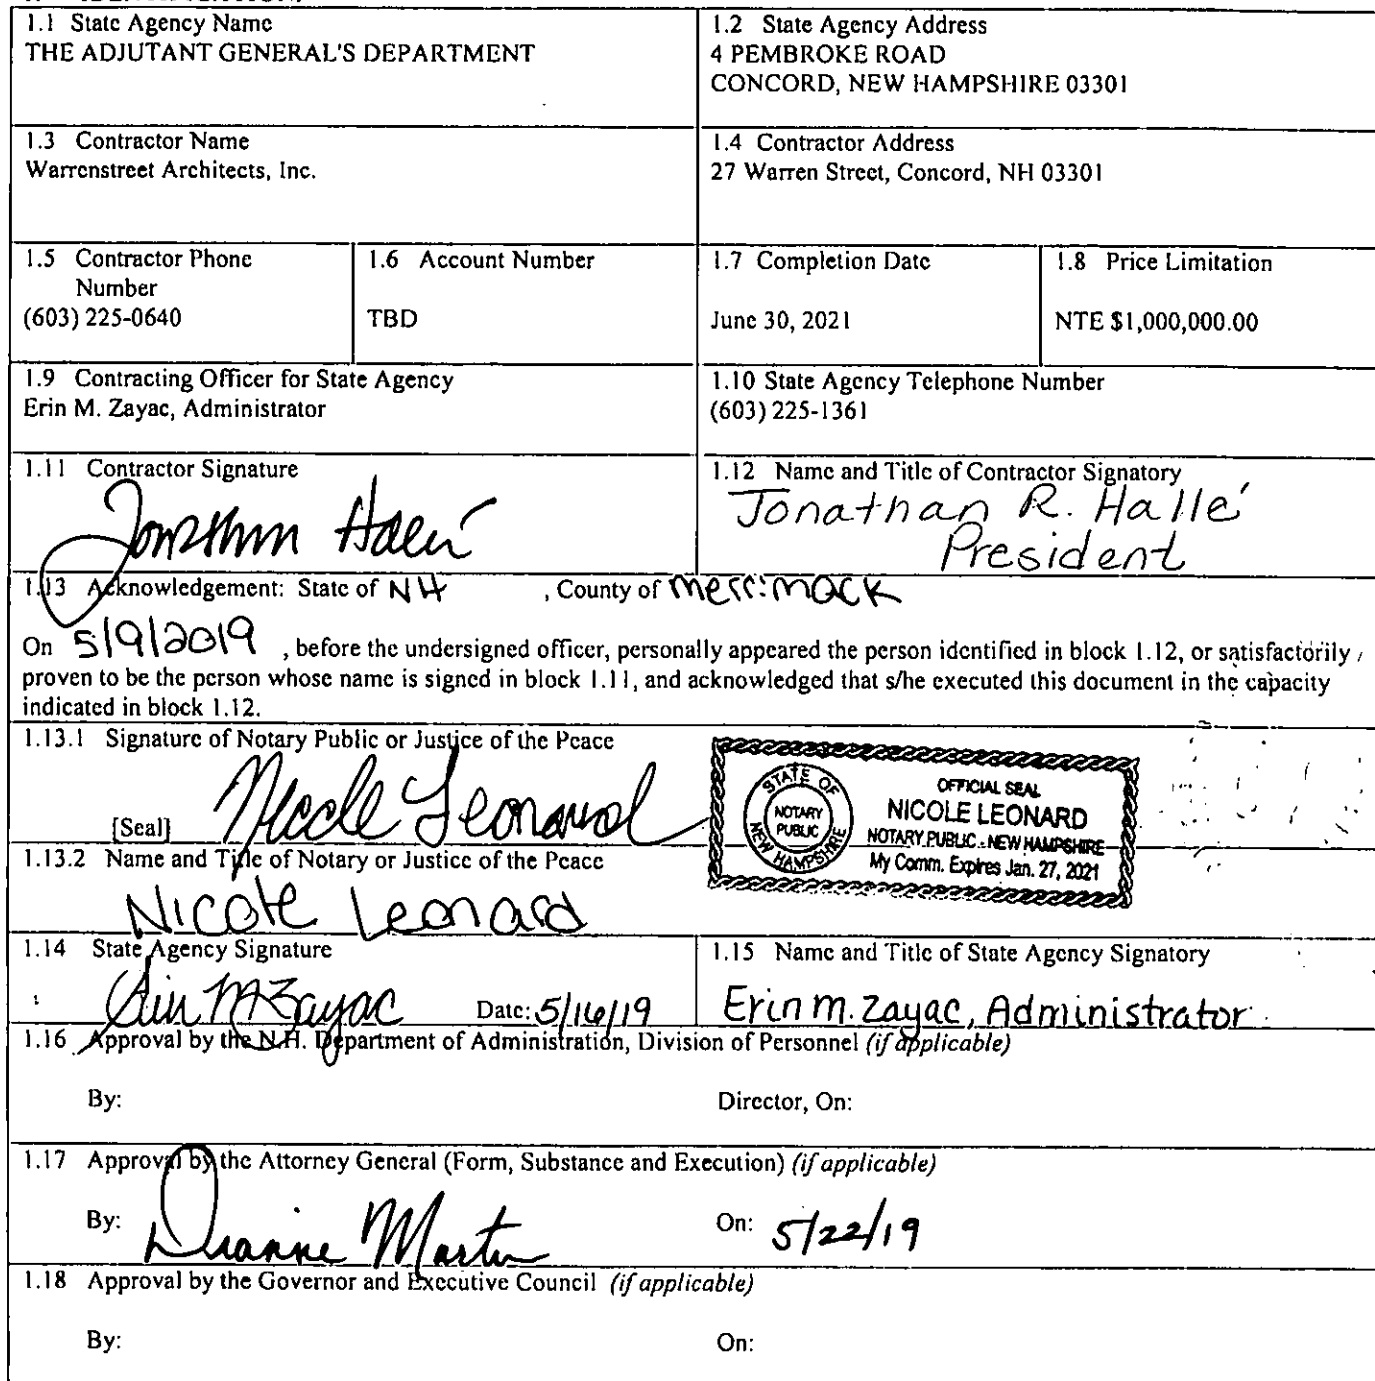 1.1 State Agency Name
THE ADJUTANT GENERAL'S DEPARTMENT
1.2 State Agency Address
4 PEMBROKE ROAD
CONCORD, NEW HAMPSHIRE 03301
1.3 Contractor Name
Warrenstreet Architects, Inc.
1.4 Contractor Address
27 Warren Street, Concord, NH 03301
1.5 Contractor Phone
Number
(603) 225-0640
1.6 Account Number
TBD
1.7 Completion Date
June 30, 2021
1.8 Price Limitation
NTE $1,000,000.00
1.9 Contracting Officer for State Agency
Erin M. Zayac, Administrator
1.10 State Agency Telephone Number
(603) 225-1361
1.11 Contractor Signature
Jonathan Hallé
1.12 Name and Title of Contractor Signatory
Jonathan R. Hallé
President
1.13 Acknowledgement: State of NH , County of Merrimack
On 5/9/2019 , before the undersigned officer, personally appeared the person identified in block 1.12, or satisfactorily
proven to be the person whose name is signed in block 1.11, and acknowledged that s/he executed this document in the capacity
indicated in block 1.12.
1.13.1 Signature of Notary Public or Justice of the Peace
Nicole Leonard
[Seal]
STATE OF NEW HAMPSHIRE
NOTARY
PUBLIC
OFFICIAL SEAL
NICOLE LEONARD
NOTARY PUBLIC - NEW HAMPSHIRE
My Comm. Expires Jan. 27, 2021
1.13.2 Name and Title of Notary or Justice of the Peace
Nicole Leonard
1.14 State Agency Signature
Erin M Zayac Date: 5/16/19
1.15 Name and Title of State Agency Signatory
Erin M. Zayac, Administrator
1.16 Approval by the N.H. Department of Administration, Division of Personnel (if applicable)
By: Director, On:
1.17 Approval by the Attorney General (Form, Substance and Execution) (if applicable)
By: Dianne Martin On: 5/22/19
1.18 Approval by the Governor and Executive Council (if applicable)
By: On: